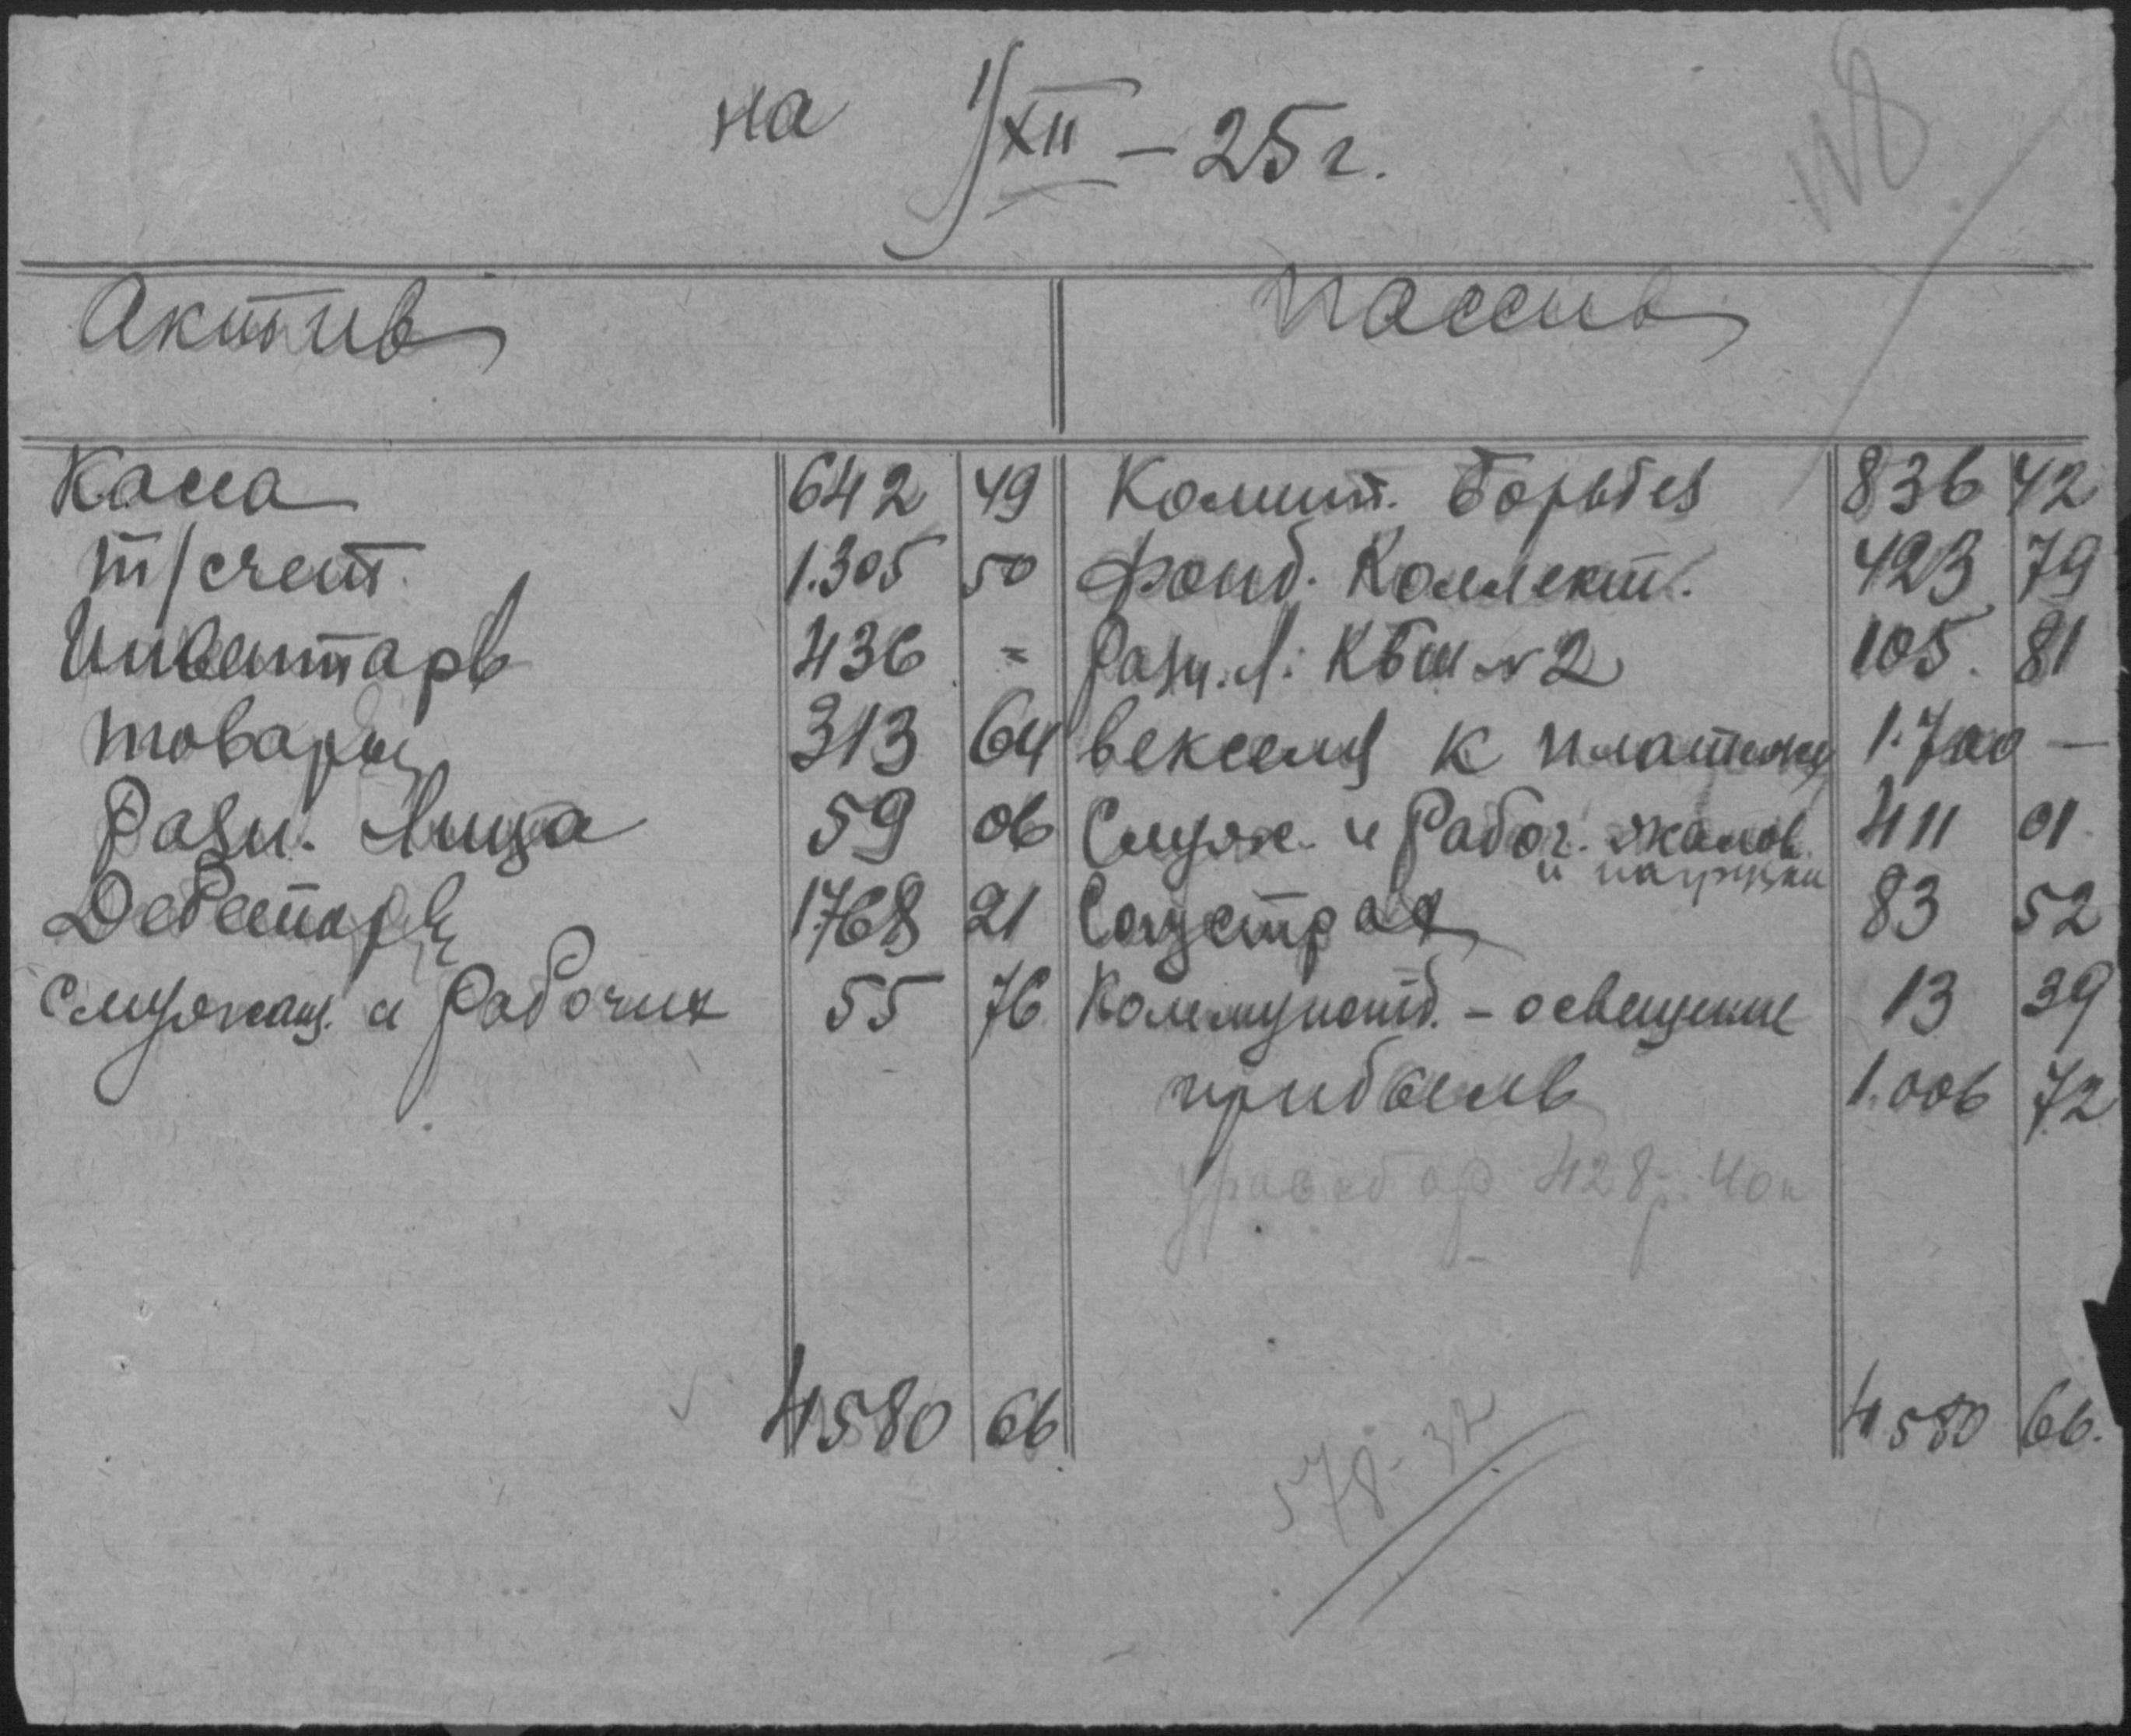 на 1/XII – 25 г.
118
Актив Пассив
Касса 642 49 Комит. Борьбы 836 42
т/счет. 1.305 50 Фонд. Коллект. 423 79
Инвентарь 436 = Разн. Л. КБш № 2 105. 81
товары 313 64 векселя к платежу 1.700 —
Разн. Лица 59 06 Служ. и Рабоч. жалов. 411 01
и нагрузки
Дебеторы 1768 21 Соцстрах 83 52
Служащ. и Рабочих 55 76 Коммунотд. – освещение 13 39
прибыль 1.006 72
428 р. 40 к
4580 66 4580 66.
578-32